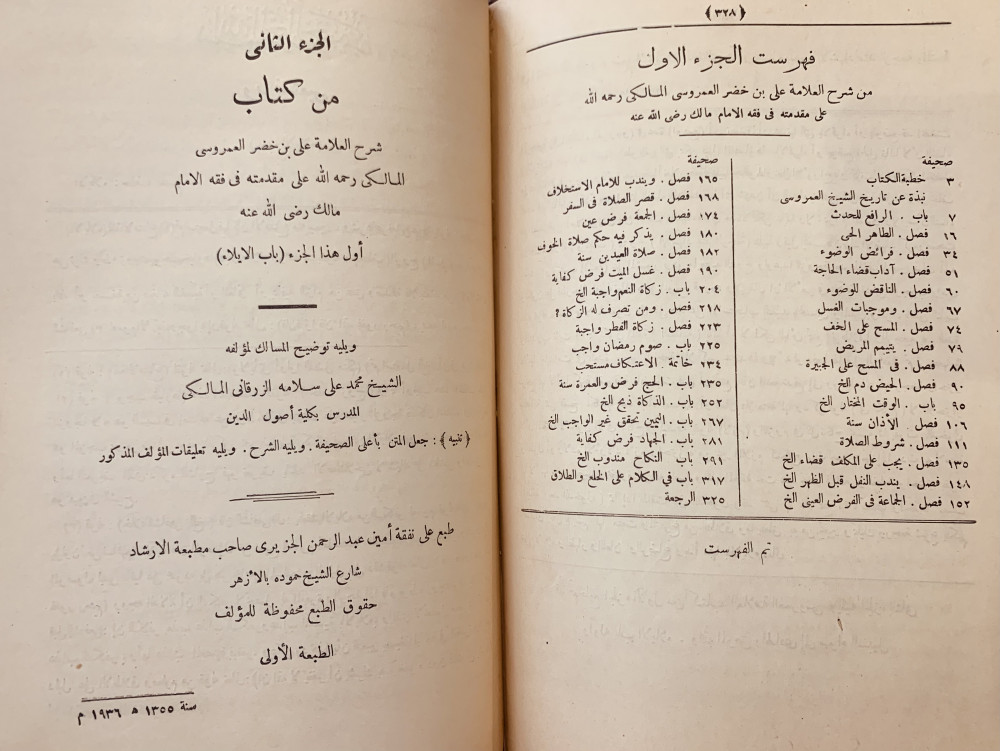 ﴿٣٢٨﴾
فهرست الجزء الاول
من شرح العلامة على بن خضر العمروسى المالكى رحمه الله
على مقدمته فى فقه الامام مالك رضى الله عنه
صحيفة
٣ خطبة الكتاب
نبذة عن تاريخ الشيخ العمروسى
٧ باب . الرافع للحدث
١٦ فصل . الطاهر الحى
٣٤ فصل . فرائض الوضوء
٥١ فصل . آداب قضاء الحاجة
٦٠ فصل . الناقض للوضوء
٦٧ فصل . وموجبات الغسل
٧٤ فصل . المسح على الخف
٧٩ فصل . يتيمم المريض
٨٨ فصل . فى المسح على الجبيرة
٩٠ فصل . الحيض دم الخ
٩٥ باب . الوقت المختار الخ
١٠٦ فصل الأذان سنة
١١١ فصل . شروط الصلاة
١٣٥ فصل . يجب على المكلف قضاء الخ
١٤٨ فصل . يندب النفل قبل الظهر الخ
١٥٢ فصل . الجماعة فى الفرض العينى الخ
صحيفة
١٦٥ فصل . ويندب للامام الاستخلاف
١٦٨ فصل . قصر الصلاة فى السفر
١٧٤ فصل . الجمعة فرض عين
١٨٠ فصل . يذكر فيه حكم صلاة الخوف
١٨٢ فصل . صلاة العيدين سنة
١٩٠ فصل . غسل الميت فرض كفاية
٢٠٤ باب . زكاة النعم واجبة الخ
٢١٨ فصل . ومن تصرف له الزكاة ؟
٢٢٣ فصل . زكاة الفطر واجبة
٢٢٥ باب . صوم رمضان واجب
٢٣٤ خاتمة الاعتكاف مستحب
٢٣٥ باب . الحج فرض والعمرة سنة
٢٥٢ باب . الذكاة ذبح الخ
٢٦٧ باب . اليمين تحقق غير الواجب الخ
٢٨١ باب . الجهاد فرض كفاية
٢٩١ باب النكاح مندوب الخ
٣١٧ باب فى الكلام على الخلع والطلاق
٣٢٥ الرجعة
تم الفهرست
الجزء الثانى
من كتاب
شرح العلامة على بن خضر العمروسى
المالكى رحمه الله على مقدمته فى فقه الامام
مالك رضى الله عنه
أول هذا الجزء (باب الايلاء)
ويليه توضيح المسالك لمؤلفه
الشيخ محمد على سلامه الزرقانى المالكى
المدرس بكلية أصول الدين
﴿تنبيه﴾ : جعل المتن بأعلى الصحيفة . ويليه الشرح . ويليه تعليقات المؤلف المذكور
طبع على نفقة أمين عبد الرحمن الجزيرى صاحب مطبعة الارشاد
شارع الشيخ حموده بالأزهر
حقوق الطبع محفوظة للمؤلف
الطبعة الأولى
سنة ١٣٥٥ ه ١٩٣٦ م